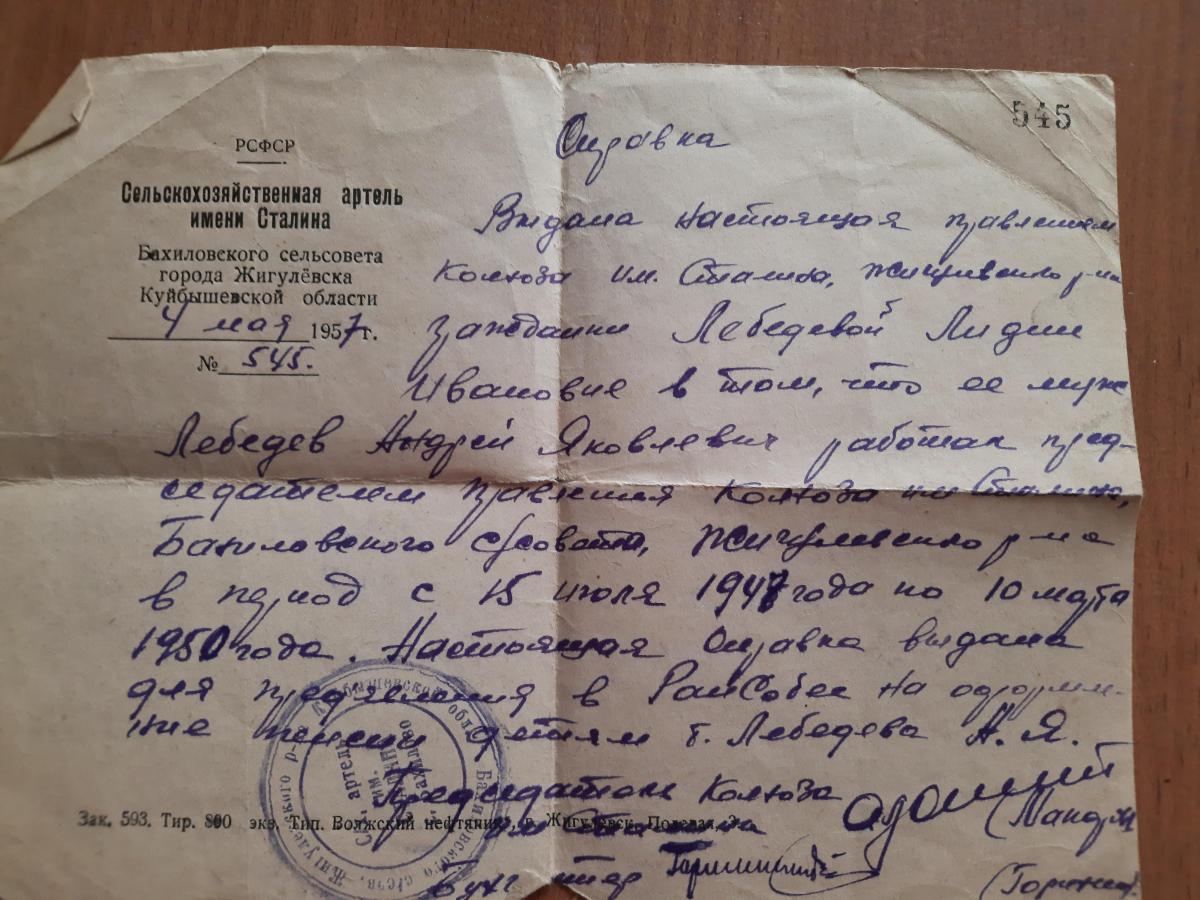 545
РСФСР
Сельскохозяйственная артель
имени Сталина
Бахиловского сельсовета
города Жигулёвска
Куйбышевской области
4 мая 1957 г.
№ 545.
Справка
Выдана настоящая правлением
Колхоза им. Сталина, Жигулевского р-на
гражданке Лебедевой Лидии
Ивановне в том, что ее муж
Лебедев Андрей Яковлевич работал пред-
седателем правления Колхоза им Сталина,
Бахиловского с/совета, Жигулевского р-на
в период с 15 июля 1947 года по 10 марта
1950 года. Настоящая справка выдана
для предявления в РайСобес на оформле-
ние пенсии детям т. Лебедева А. Я.
Председатель Колхоза
им Сталина
Зак. 593. Тир. 800 экз. Тип. Волжский нефтяник, г. Жигулевск, Полевая,
Бухгалтер